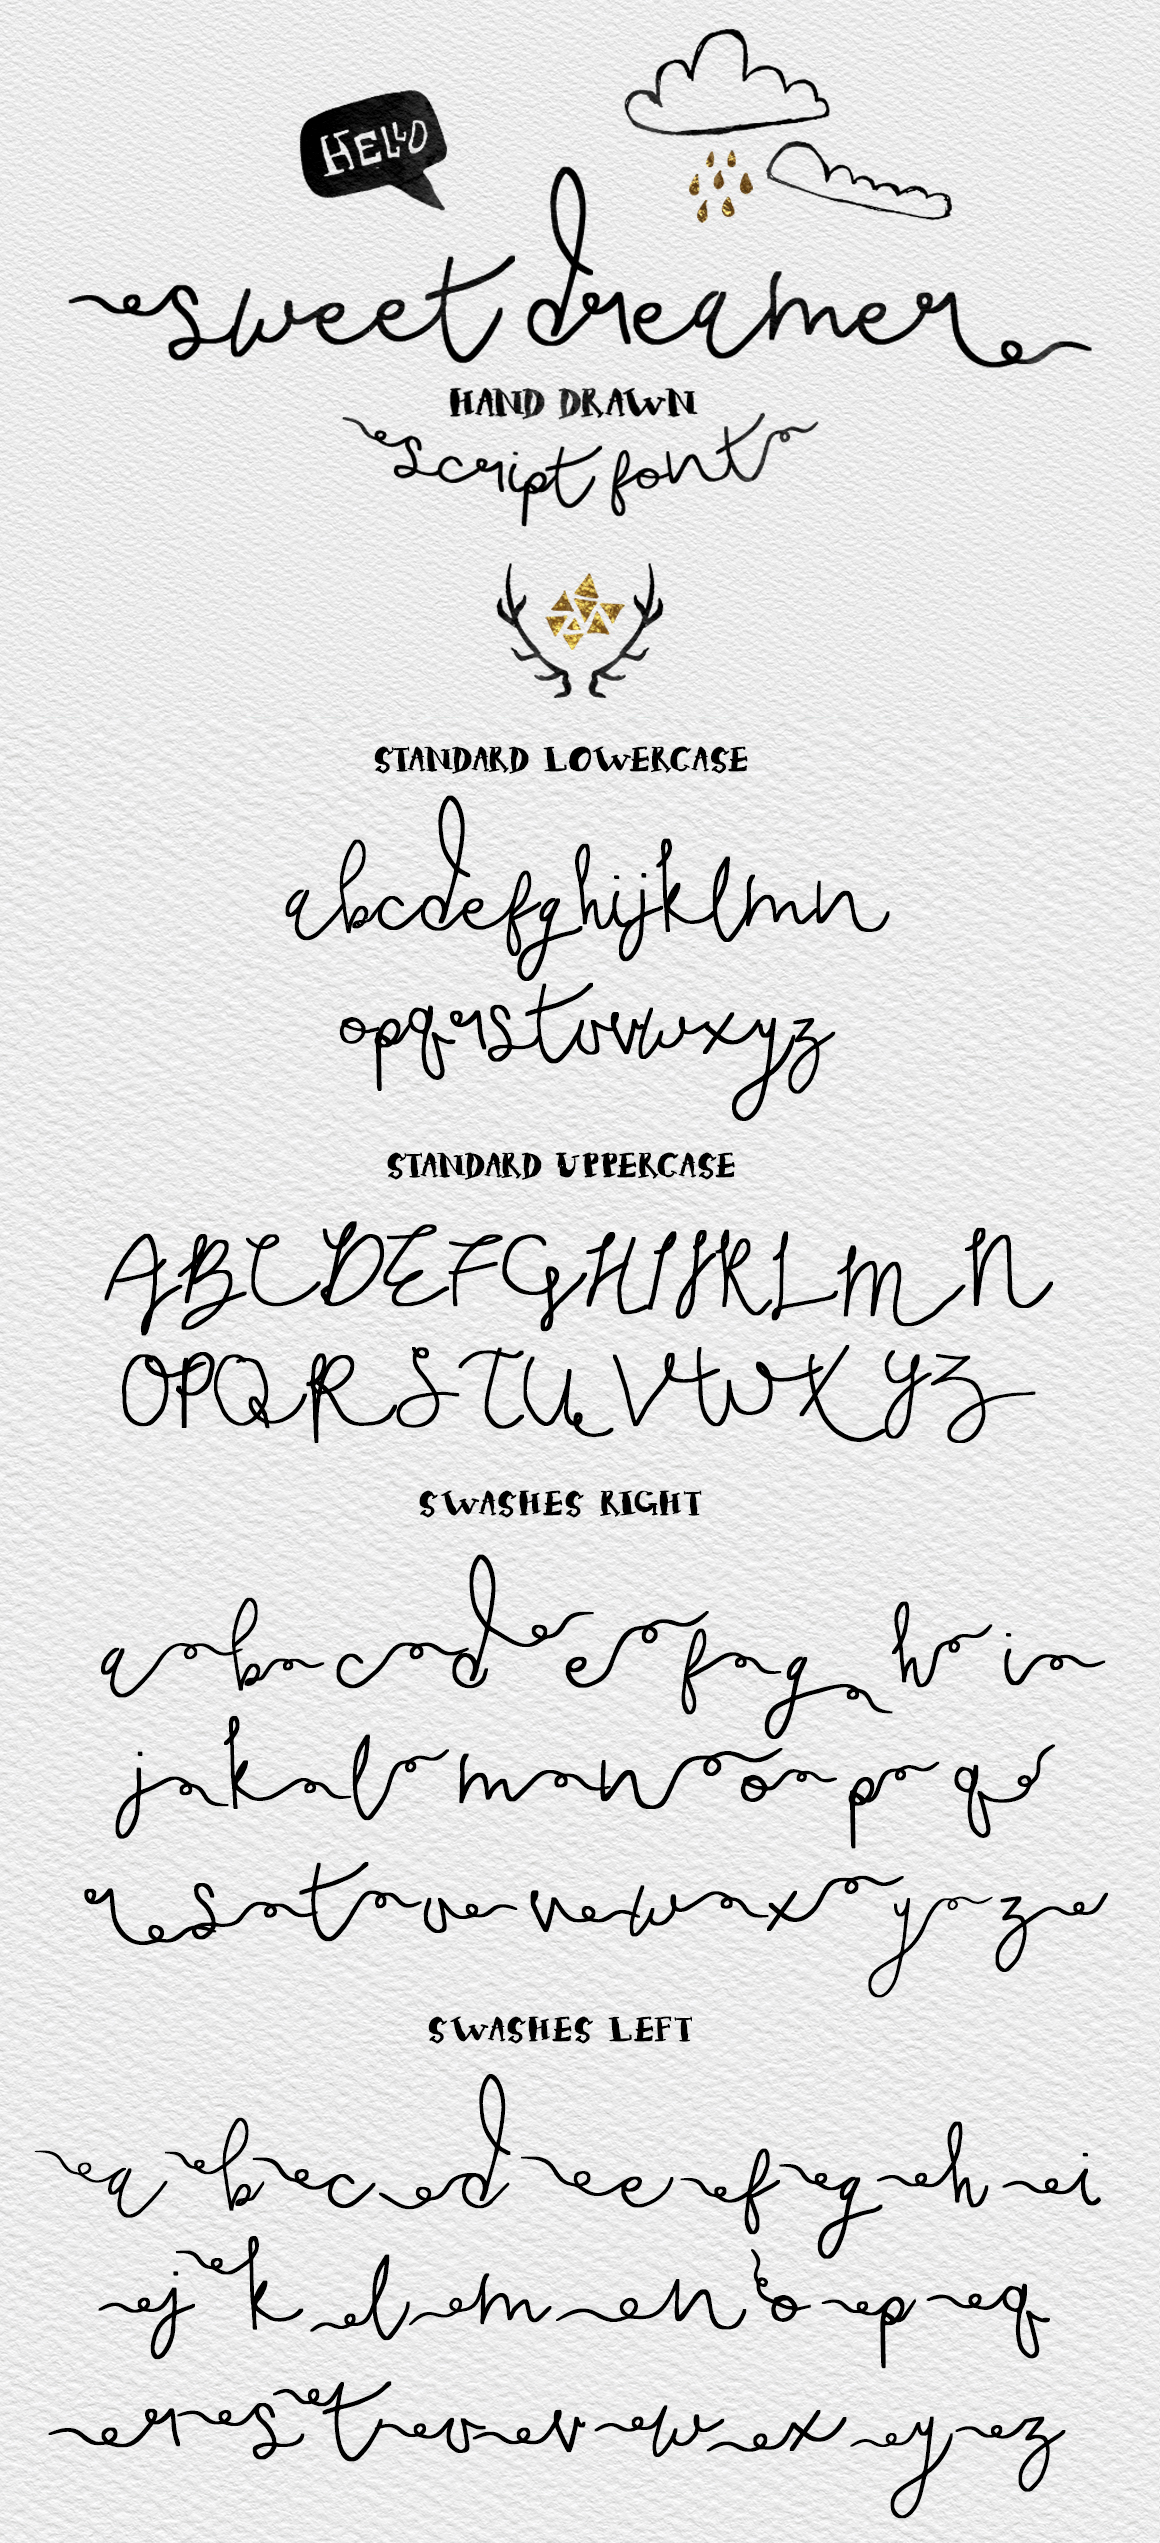 HELLO
sweet dreamer
HAND DRAWN
script font
STANDARD LOWERCASE
abcdefghijklmn
opqrstuvwxyz
STANDARD UPPERCASE
ABCDEFGHIJKLMN
OPQRSTUVWXYZ
SWASHES RIGHT
abcdefghi
jklmnopq
rstuvwxyz
SWASHES LEFT
abcdefghi
jklmnopq
rstuvwxyz